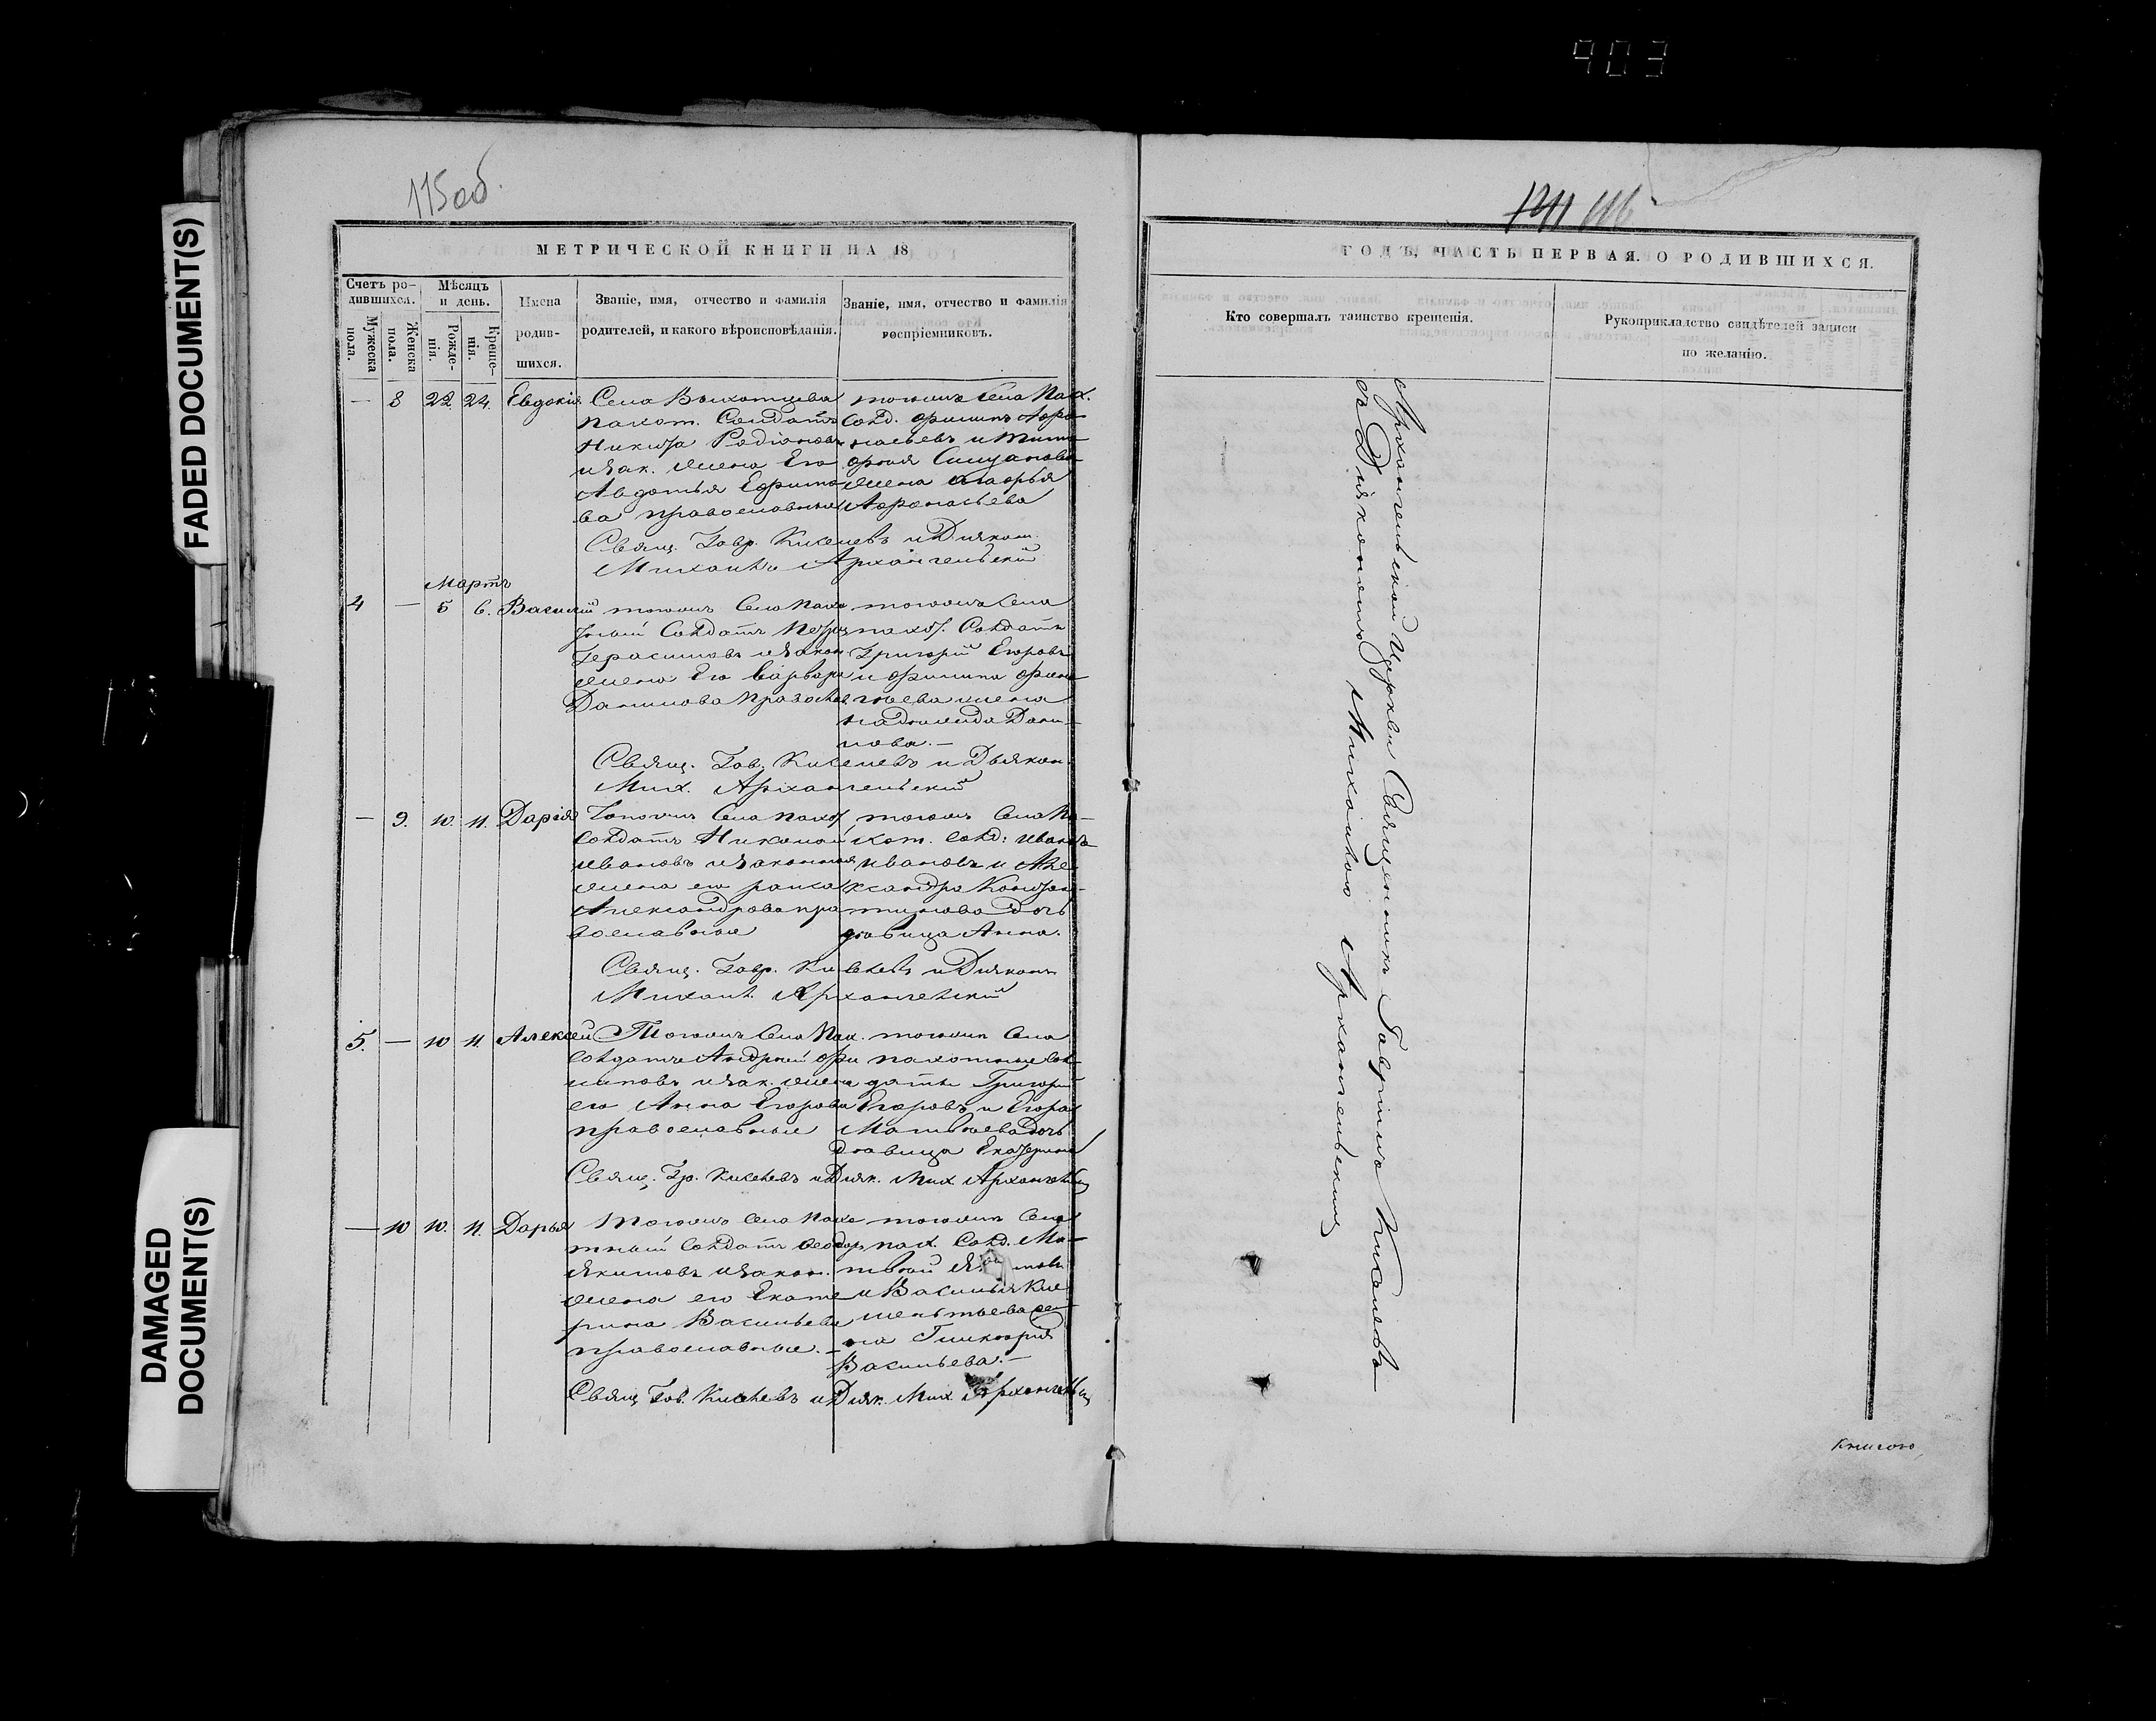 403
FADED DOCUMENT(S)
DAMAGED
DOCUMENT(S)
115об.
МЕТРИЧЕСКОЙ КНИГИ НА 18
Счетъ ро-
дившихся.
Мужеска
пола.
Женска
пола.
Мѣсяцъ
и день.
Рожде-
нія.
Креще-
нія.
Имена
родив-
шихся.
Званіе, имя, отчество и фамилія
родителей, и какого вѣроисповѣданія.
Званіе, имя, отчество и фамилія
воспріемниковъ.
— 8 22. 24. Евдокія
Села
Пахот. Солдатъ
Никита Родіоновъ
и зак. жена Его
Авдотья Ефимо
ва православные
тогожъ села Пах.
Солд. Филипъ Афа
насьевъ и
жена
Афонасьева
Свящ. Гавр. Киселевъ и Діякон.
Михаилъ Архангельскій
Мартъ
4 — 5 6. Василій
тогожъ Села Пахо
тный Солдатъ Петръ
Герасимовъ и Закон
жена Его Варвара
Данилова Православ
тогожъ Села
пахот. Солдатъ
Григорій Егоровъ
и Филипа
жена
Дани-
лова. —
Свящ. Гав. Киселевъ и Дьякон.
Мих. Архангельскій
— 9. 10. 11. Дарія
Тогожъ Села Пахот
Солдатъ Николай
Ивановъ и Законная
жена его
Александрова пра
вославные
тогожъ Села Па-
хот. Солд: Иванъ
Ивановъ и Але
ксандра Констан-
тинова дочь
дѣвица Анна.
Свящ. Гавр. Киселевъ и Діяконъ
Михаил. Архангельскій
5. — 10 11. Алексей
Тогожъ Села Пах.
Солдатъ Андрей Фи
липовъ и Зак. жена
его Анна Егорова
православные
тогожъ Села
пахотные Сол
даты Григорій
Егоровъ и Егора
дочь
дѣвица Екатерина
Свящ. Гр. Киселевъ и Діяк. Мих Архангельскій
— 10 10. 11. Дарья
Тогожъ Села Пахо
тный Солдатъ Феодоръ
Якимовъ и Закон.
жена его Екате
рина Васильева
православные. —
тогожъ Села
пах. Солд. Ма-
и Василья Кле
ментьева же
на Гликерія
Васильева. —
Свящ Гав. Киселевъ и Діяк. Мих Архангельскій
116
ГОДЪ, ЧАСТЬ ПЕРВАЯ. О РОДИВШИХСЯ.
Кто совершалъ таинство крещенія.
Рукоприкладство свидѣтелей записи
по желанію.
Архангельской Церкви Священникъ Гавріилъ Киселевъ
съ Діякономъ Михаиломъ Архангельскимъ